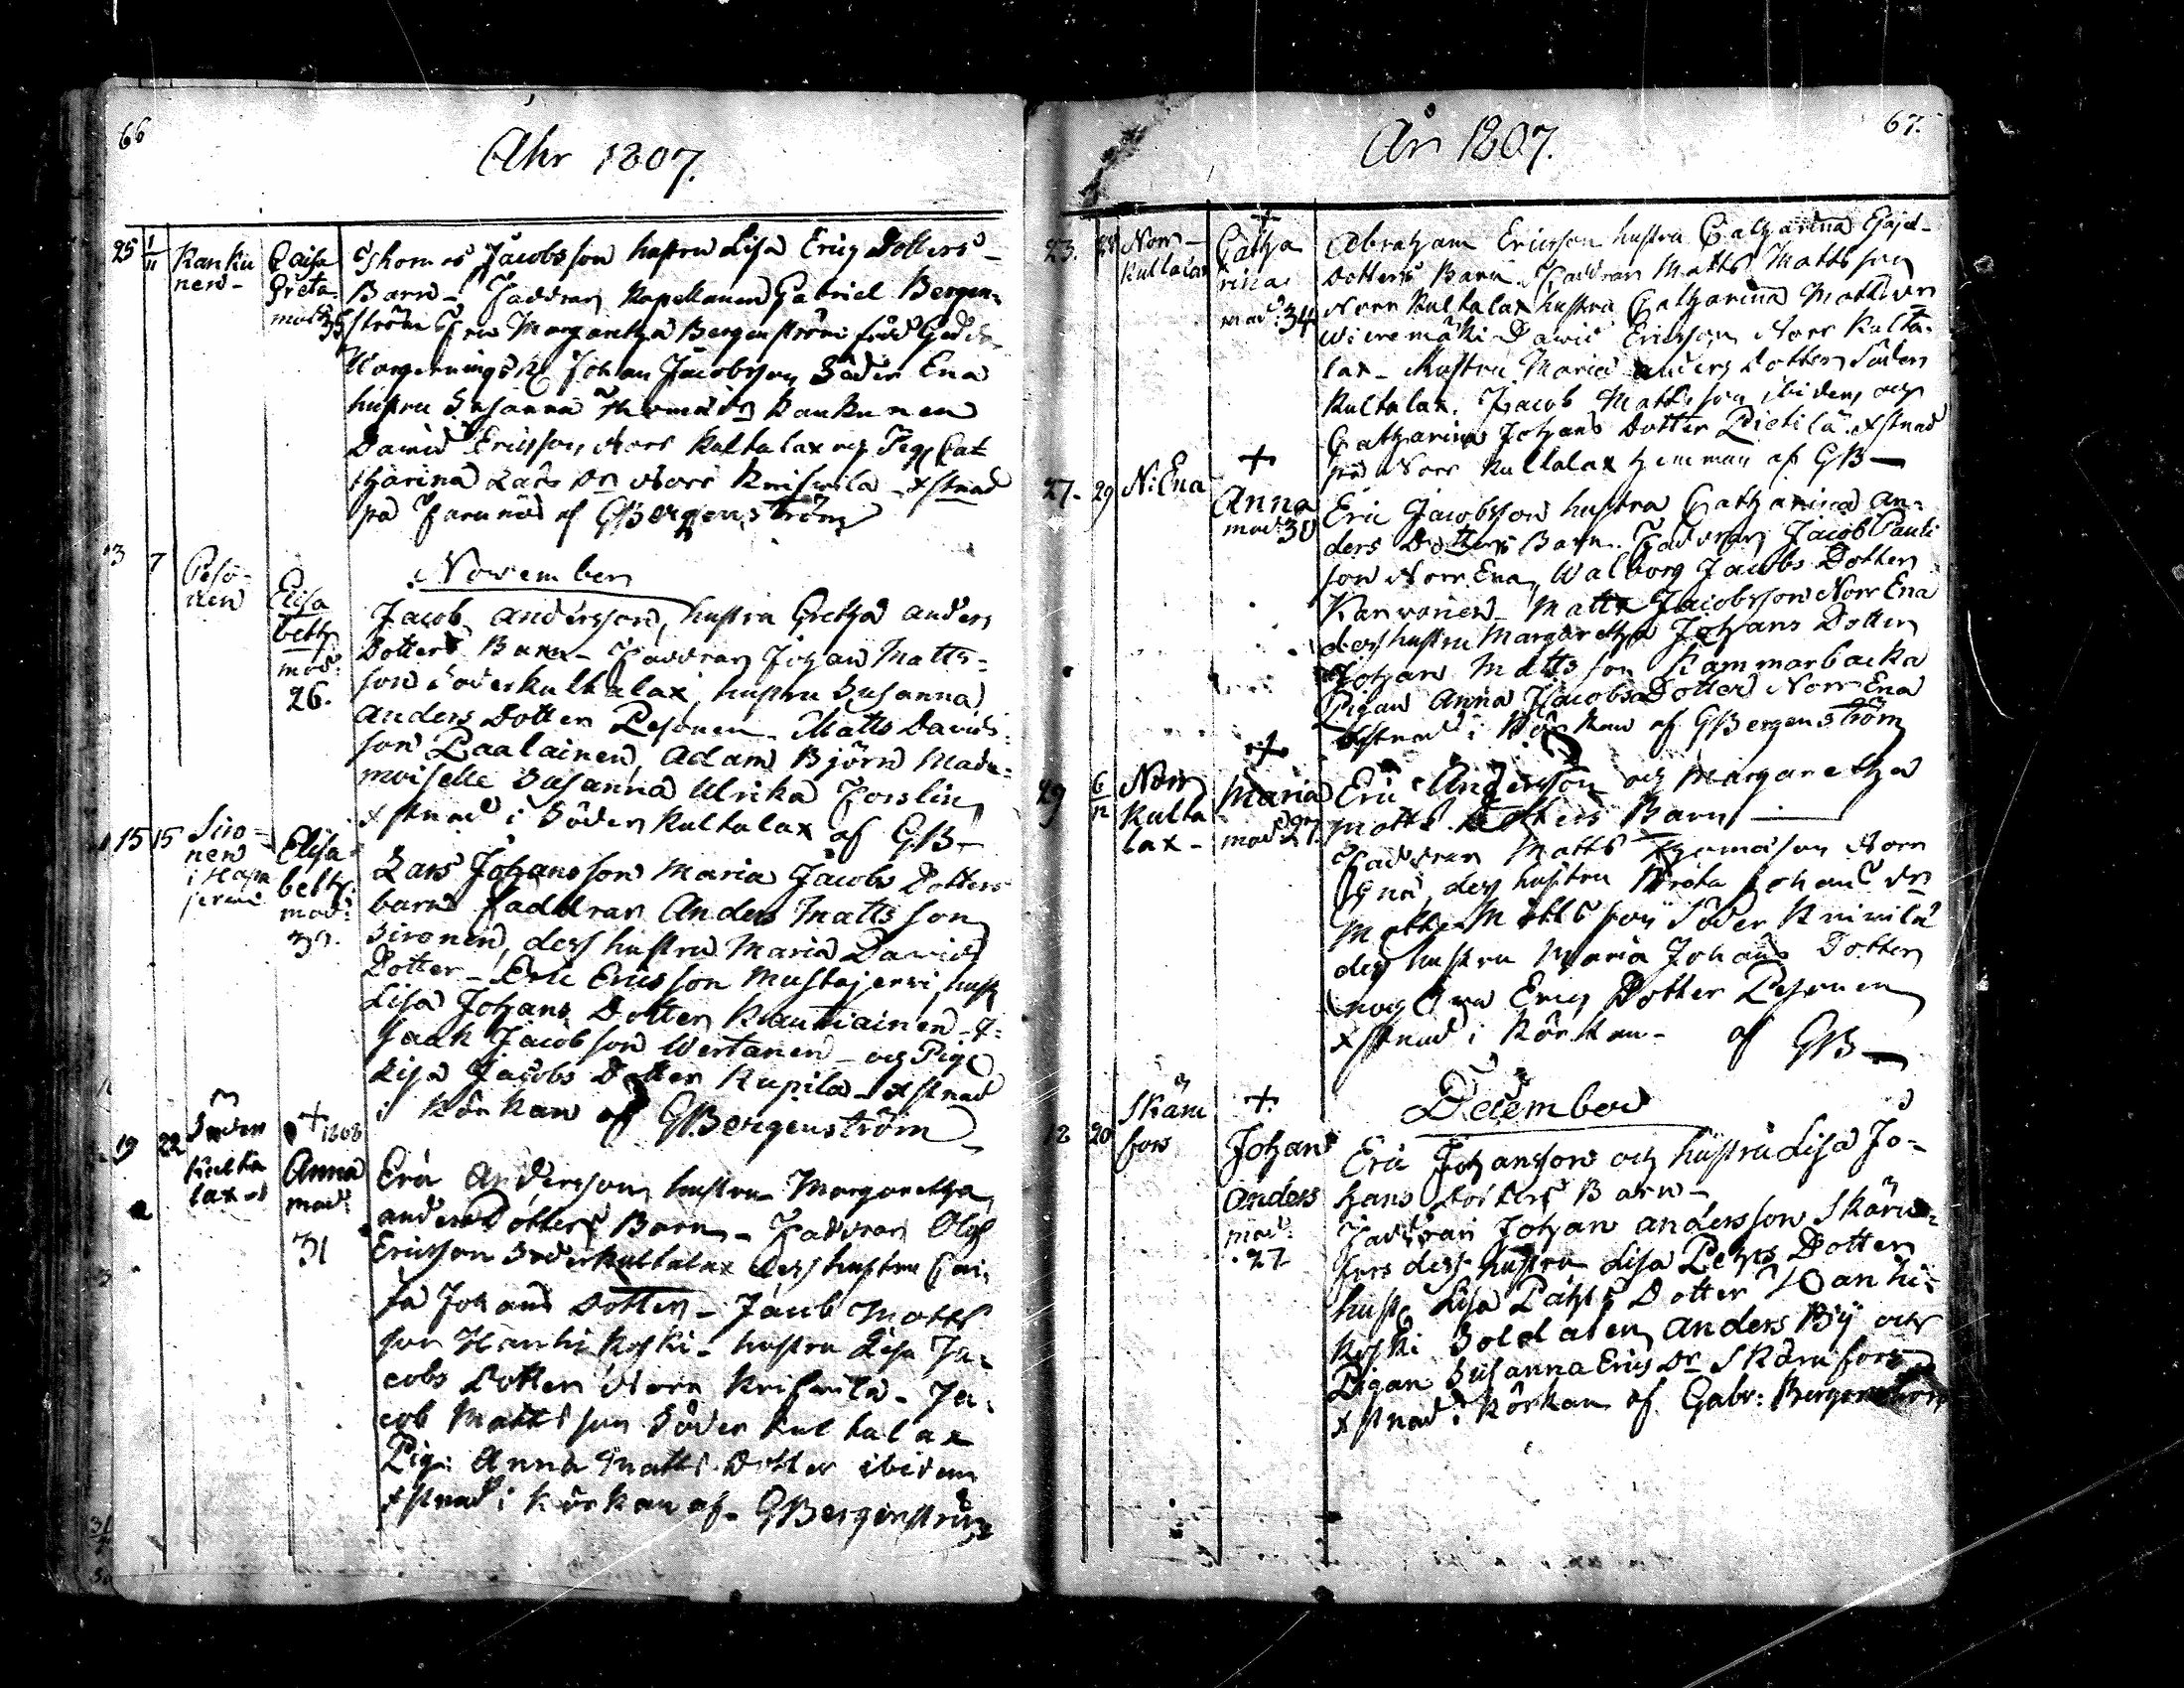 66
Ahr 1807.
25 1/11 Kanku Caisa Thomas Jacobsson hustru Lisa Erics Dotters
nen Greta Barn Faddrar Kapellanen Gabriel Bergen=
mod: 35 ström Fru Margaretha Bergenström född
Johan Jacobsson Söder Ena
hustru Susanna Thomæ Dr Kankunen
David Ericsson Norr Kultalax och Pig. Cat
harina Lars Dr Norr Krifwila xstnad
på Fanenäs af GBergenström
November
3 7 Peso- Elisa
nen beth Jacob Andersson, hustru Gretha Anders
mod: Dotters Barn Faddrar Johan Matts=
26. son Söderkultalax, hustru Susanna
Anders Dotter Pesonen Matts Davids
son Paalainen, Adam Björn Made=
moiselle Susanna Ulrika Forslin
xstnad i Söder Kultalax af GB
15 15 Siro- Elisa
nen beth. Lars Johansson Maria Jacobs Dotters
mod: barn Faddrar Anders Mattsson
Sironen, dess hustru Maria Davids
Dotter Eric Ericsson Mustajerwi, hust
Lisa Johans Dotter Kautiainen I=
saak Jacobsson Wertanen och Pig.
Lisa Jacobs Dotter Kupila xstnad
i Körkan af GBergenström
19 22 Söder + 1808
Kulta Anna Eric Andersson hustru Margaretha
lax mod: Anders Dotters Barn Faddrar Olof
31 Ericsson Söderkultalax dess hustru Cai
sa Johans Dotter Jacob Matts
son Hanhikoski hustru Lisa Ja=
cobs Dotter Norr Krifwila Ja=
cob Mattsson Söder Kultalax
Pig: Anna Matts Dotter ibidem
xstnad i Körkan af GBergenström
67.
År 1807.
23. 28 Norr + Catha Abraham Ericsson hustru Catharina
Kultalax rina Dotters Barn Faddrar Matts Mattsson
mod: 34 Norr Kultalax hustru Catharina Matts Dr
Wieremäki David Ericsson Norr Kulta=
lax Hustru Maria Anders Dotter Söder
Kultalax. Jacob Mattsson ibidem och
Catharina Johans Dotter Pietilä xstnad
på Norr Kultalax hemman af GB
27. 29 N: Ena +
Anna Eric Jacobsson hustru Catharina An=
mod: 30 ders Dotters Barn. Faddrar Jacob Pauli
son Norr Ena, Walborg Jacobs Dotter
Karvonen Matts Jacobsson Norr Ena
dess hustru Margaretha Johans Dotter
Johan Mattsson Kammarbacka
Pigan Anna Jacobs Dotter Norr Ena
xstnad i Körkan af GBergenström
29 6/12 Norr + Maria Eric Andersson och Margaretha
Kulta mod 27. Matts Dotters Barn
lax Faddrar Matts Thomasson Norr
Ena, dess hustru Greta Johans Dr
Matts Mattsson Söder Knivilä
dess hustru Maria Johans Dotter
Erics Dotter Pesonen
xstnad i Körkan af GB
December
12 20 Skäm +
fors Johan Eric Johansson och hustru Lisa Jo=
Anders hans Dotters Barn
mod: Faddrar Johan Andersson Skäm=
27 fors dess hustru Lisa Pehrs Dotter
hust. Lisa Pähls Dotter Hanhi=
koski Soldaten Anders By och
Pigan Susanna Erics Dr Skämfors
xstnad i Körkan af Gabr: Bergenström